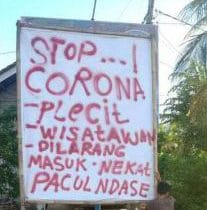 STOP...!
CORONA
-PLECIT
-WISATAWAN
-DILARANG
MASUK. NEKAT
PACUL NDASE